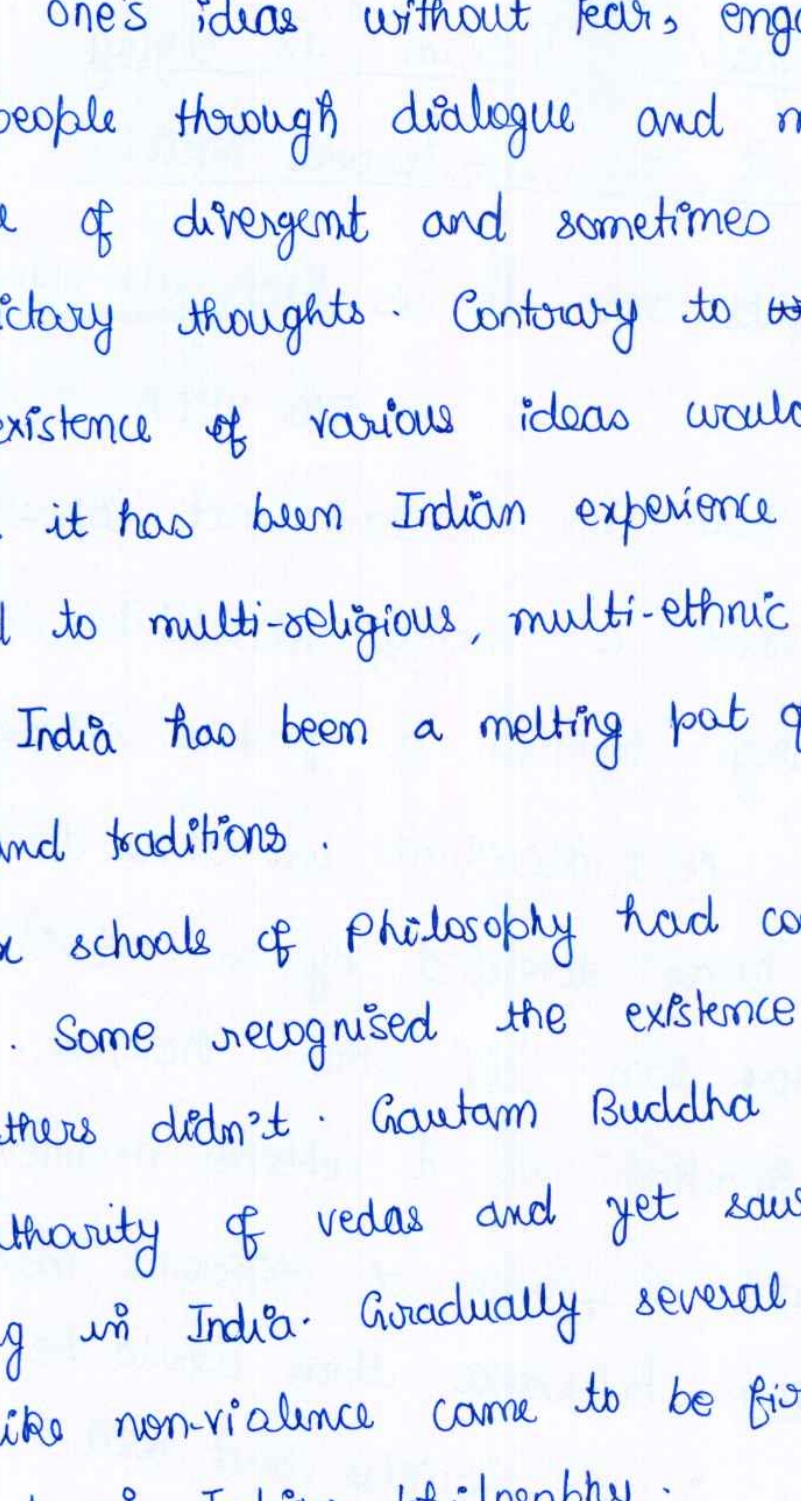 one's ideas without fear, enga
people through dialogue and
of divergent and sometimes
ictary thoughts. Contrary to
existence of various ideas would
it has been Indian experience
to multi-religious, multi-ethnic
India has been a melting pot
and traditions.
schools of Philosophy had co
. Some recognised the existence
thers didn't. Gautam Buddha
uthority of vedas and yet saw
g in India. Gradually several
like non-violence came to be fir
Indian philosophy.